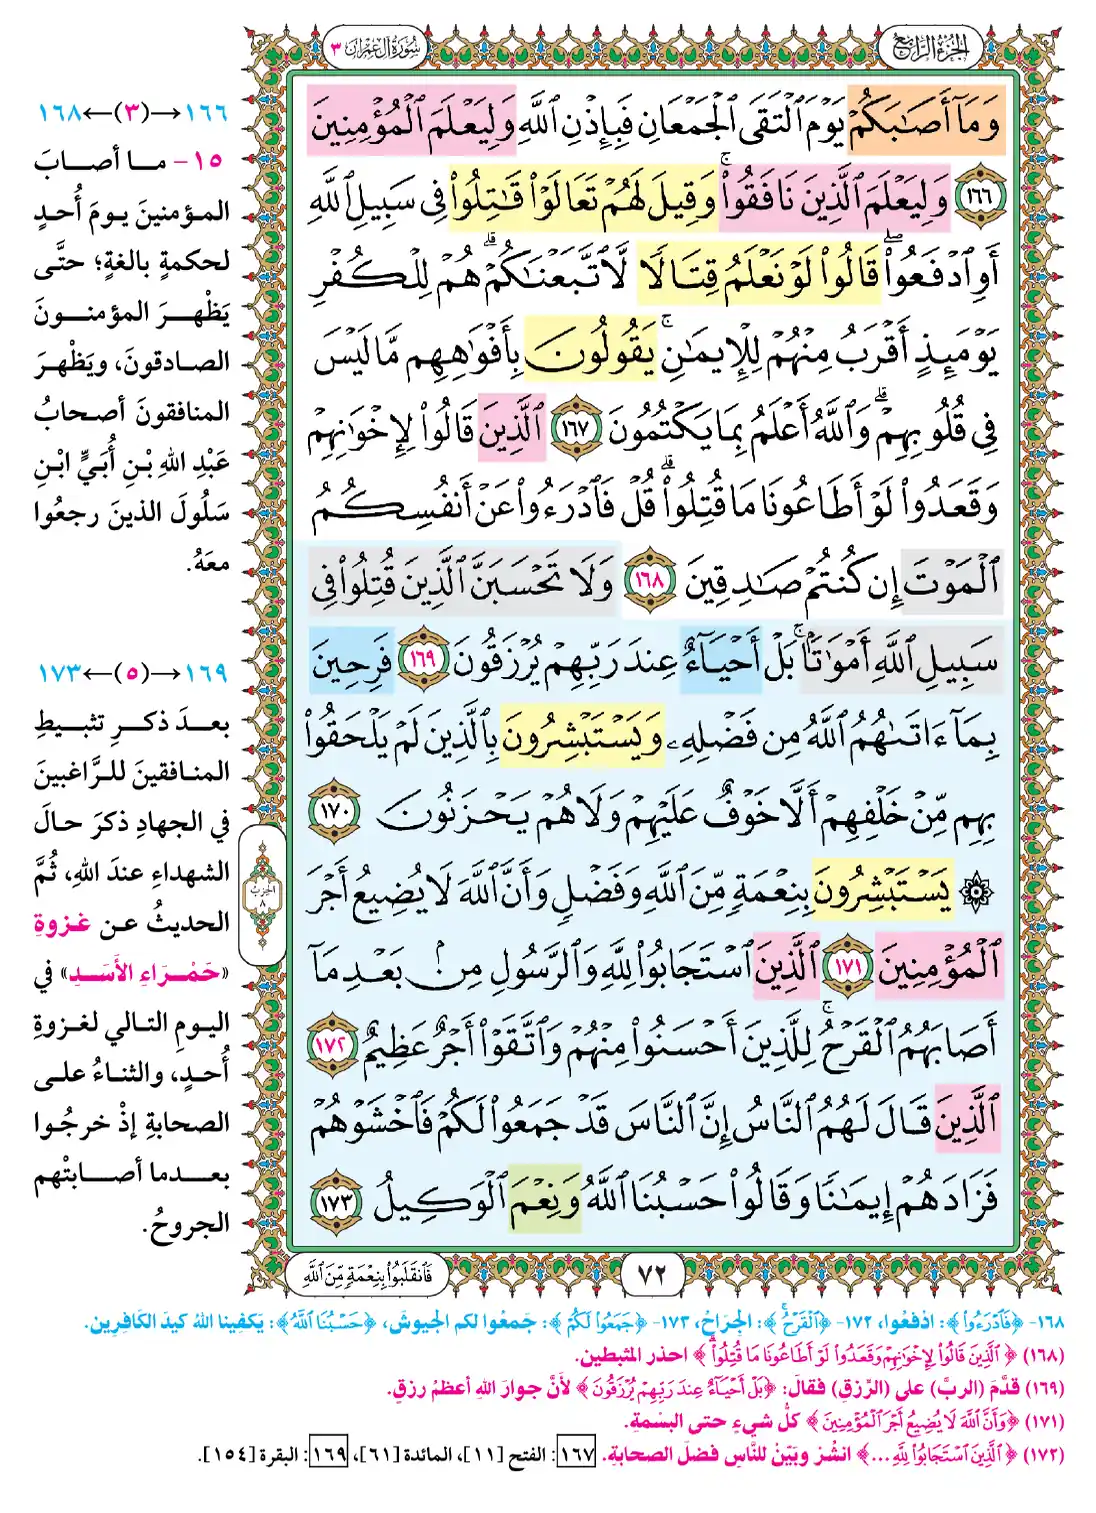 الجزء الرابع
سورة آل عمران ٣
وَمَآ أَصَـٰبَكُمْ يَوْمَ ٱلْتَقَى ٱلْجَمْعَانِ فَبِإِذْنِ ٱللَّهِ وَلِيَعْلَمَ ٱلْمُؤْمِنِينَ
١٦٦ وَلِيَعْلَمَ ٱلَّذِينَ نَافَقُوا۟ ۚ وَقِيلَ لَهُمْ تَعَالَوْا۟ قَـٰتِلُوا۟ فِى سَبِيلِ ٱللَّهِ
أَوِ ٱدْفَعُوا۟ ۖ قَالُوا۟ لَوْ نَعْلَمُ قِتَالًا لَّٱتَّبَعْنَـٰكُمْ ۗ هُمْ لِلْكُفْرِ
يَوْمَئِذٍ أَقْرَبُ مِنْهُمْ لِلْإِيمَـٰنِ ۚ يَقُولُونَ بِأَفْوَٰهِهِم مَّا لَيْسَ
فِى قُلُوبِهِمْ ۗ وَٱللَّهُ أَعْلَمُ بِمَا يَكْتُمُونَ ١٦٧ ٱلَّذِينَ قَالُوا۟ لِإِخْوَٰنِهِمْ
وَقَعَدُوا۟ لَوْ أَطَاعُونَا مَا قُتِلُوا۟ ۗ قُلْ فَٱدْرَءُوا۟ عَنْ أَنفُسِكُمُ
ٱلْمَوْتَ إِن كُنتُمْ صَـٰدِقِينَ ١٦٨ وَلَا تَحْسَبَنَّ ٱلَّذِينَ قُتِلُوا۟ فِى
سَبِيلِ ٱللَّهِ أَمْوَٰتًۢا ۚ بَلْ أَحْيَآءٌ عِندَ رَبِّهِمْ يُرْزَقُونَ ١٦٩ فَرِحِينَ
بِمَآ ءَاتَىٰهُمُ ٱللَّهُ مِن فَضْلِهِۦ وَيَسْتَبْشِرُونَ بِٱلَّذِينَ لَمْ يَلْحَقُوا۟
بِهِم مِّنْ خَلْفِهِمْ أَلَّا خَوْفٌ عَلَيْهِمْ وَلَا هُمْ يَحْزَنُونَ ١٧٠
۞ يَسْتَبْشِرُونَ بِنِعْمَةٍ مِّنَ ٱللَّهِ وَفَضْلٍ وَأَنَّ ٱللَّهَ لَا يُضِيعُ أَجْرَ
ٱلْمُؤْمِنِينَ ١٧١ ٱلَّذِينَ ٱسْتَجَابُوا۟ لِلَّهِ وَٱلرَّسُولِ مِنۢ بَعْدِ مَآ
أَصَابَهُمُ ٱلْقَرْحُ ۚ لِلَّذِينَ أَحْسَنُوا۟ مِنْهُمْ وَٱتَّقَوْا۟ أَجْرٌ عَظِيمٌ ١٧٢
ٱلَّذِينَ قَالَ لَهُمُ ٱلنَّاسُ إِنَّ ٱلنَّاسَ قَدْ جَمَعُوا۟ لَكُمْ فَٱخْشَوْهُمْ
فَزَادَهُمْ إِيمَـٰنًا وَقَالُوا۟ حَسْبُنَا ٱللَّهُ وَنِعْمَ ٱلْوَكِيلُ ١٧٣
٧٢
فَٱنقَلَبُوا۟ بِنِعْمَةٍ مِّنَ ٱللَّهِ
الحزب
٨
١٦٦→(٣)←١٦٨
١٥- مــا أصــابَ
المؤمنينَ يومَ أُحدٍ
لحكمةٍ بالغةٍ؛ حتَّى
يَظْهرَ المؤمنونَ
الصادقونَ، ويَظْهرَ
المنافقونَ أصحابُ
عَبْدِ اللهِ بْنِ أُبَيٍّ ابْنِ
سَلُولَ الذينَ رجعُوا
معَهُ.
١٦٩→(٥)←١٧٣
بعدَ ذكرِ تثبيطِ
المنافقينَ للرَّاغبينَ
في الجهادِ ذكرَ حالَ
الشهداءِ عندَ اللهِ، ثُمَّ
الحديثُ عن غزوةِ
«حَمْرَاءِ الأَسَدِ» في
اليومِ التالي لغزوةِ
أُحدٍ، والثناءُ على
الصحابةِ إذْ خرجُوا
بعدما أصابتْهم
الجروحُ.
١٦٨- ﴿فَٱدْرَءُوا۟﴾: ادْفعُوا، ١٧٢- ﴿ٱلْقَرْحُ ۚ﴾: الجِرَاحُ، ١٧٣- ﴿جَمَعُوا۟ لَكُمْ﴾: جَمعُوا لكم الجيوشَ، ﴿حَسْبُنَا ٱللَّهُ﴾: يَكفِينا اللهُ كيدَ الكَافِرِين.
(١٦٨) ﴿ٱلَّذِينَ قَالُوا۟ لِإِخْوَٰنِهِمْ وَقَعَدُوا۟ لَوْ أَطَاعُونَا مَا قُتِلُوا۟ ۗ﴾ احذر المثبطين.
(١٦٩) قدَّمَ (الربَّ) على (الرِّزقِ) فقالَ: ﴿بَلْ أَحْيَآءٌ عِندَ رَبِّهِمْ يُرْزَقُونَ﴾ لأنَّ جوارَ اللهِ أعظمُ رزقٍ.
(١٧١) ﴿وَأَنَّ ٱللَّهَ لَا يُضِيعُ أَجْرَ ٱلْمُؤْمِنِينَ﴾ كلُّ شيءٍ حتى البسْمةِ.
(١٧٢) ﴿ٱلَّذِينَ ٱسْتَجَابُوا۟ لِلَّهِ ...﴾ انشُرْ وبَيِّنْ للنَّاسِ فضلَ الصحابةِ. ١٦٧: الفتح [١١]، المائدة [٦١]، ١٦٩: البقرة [١٥٤].